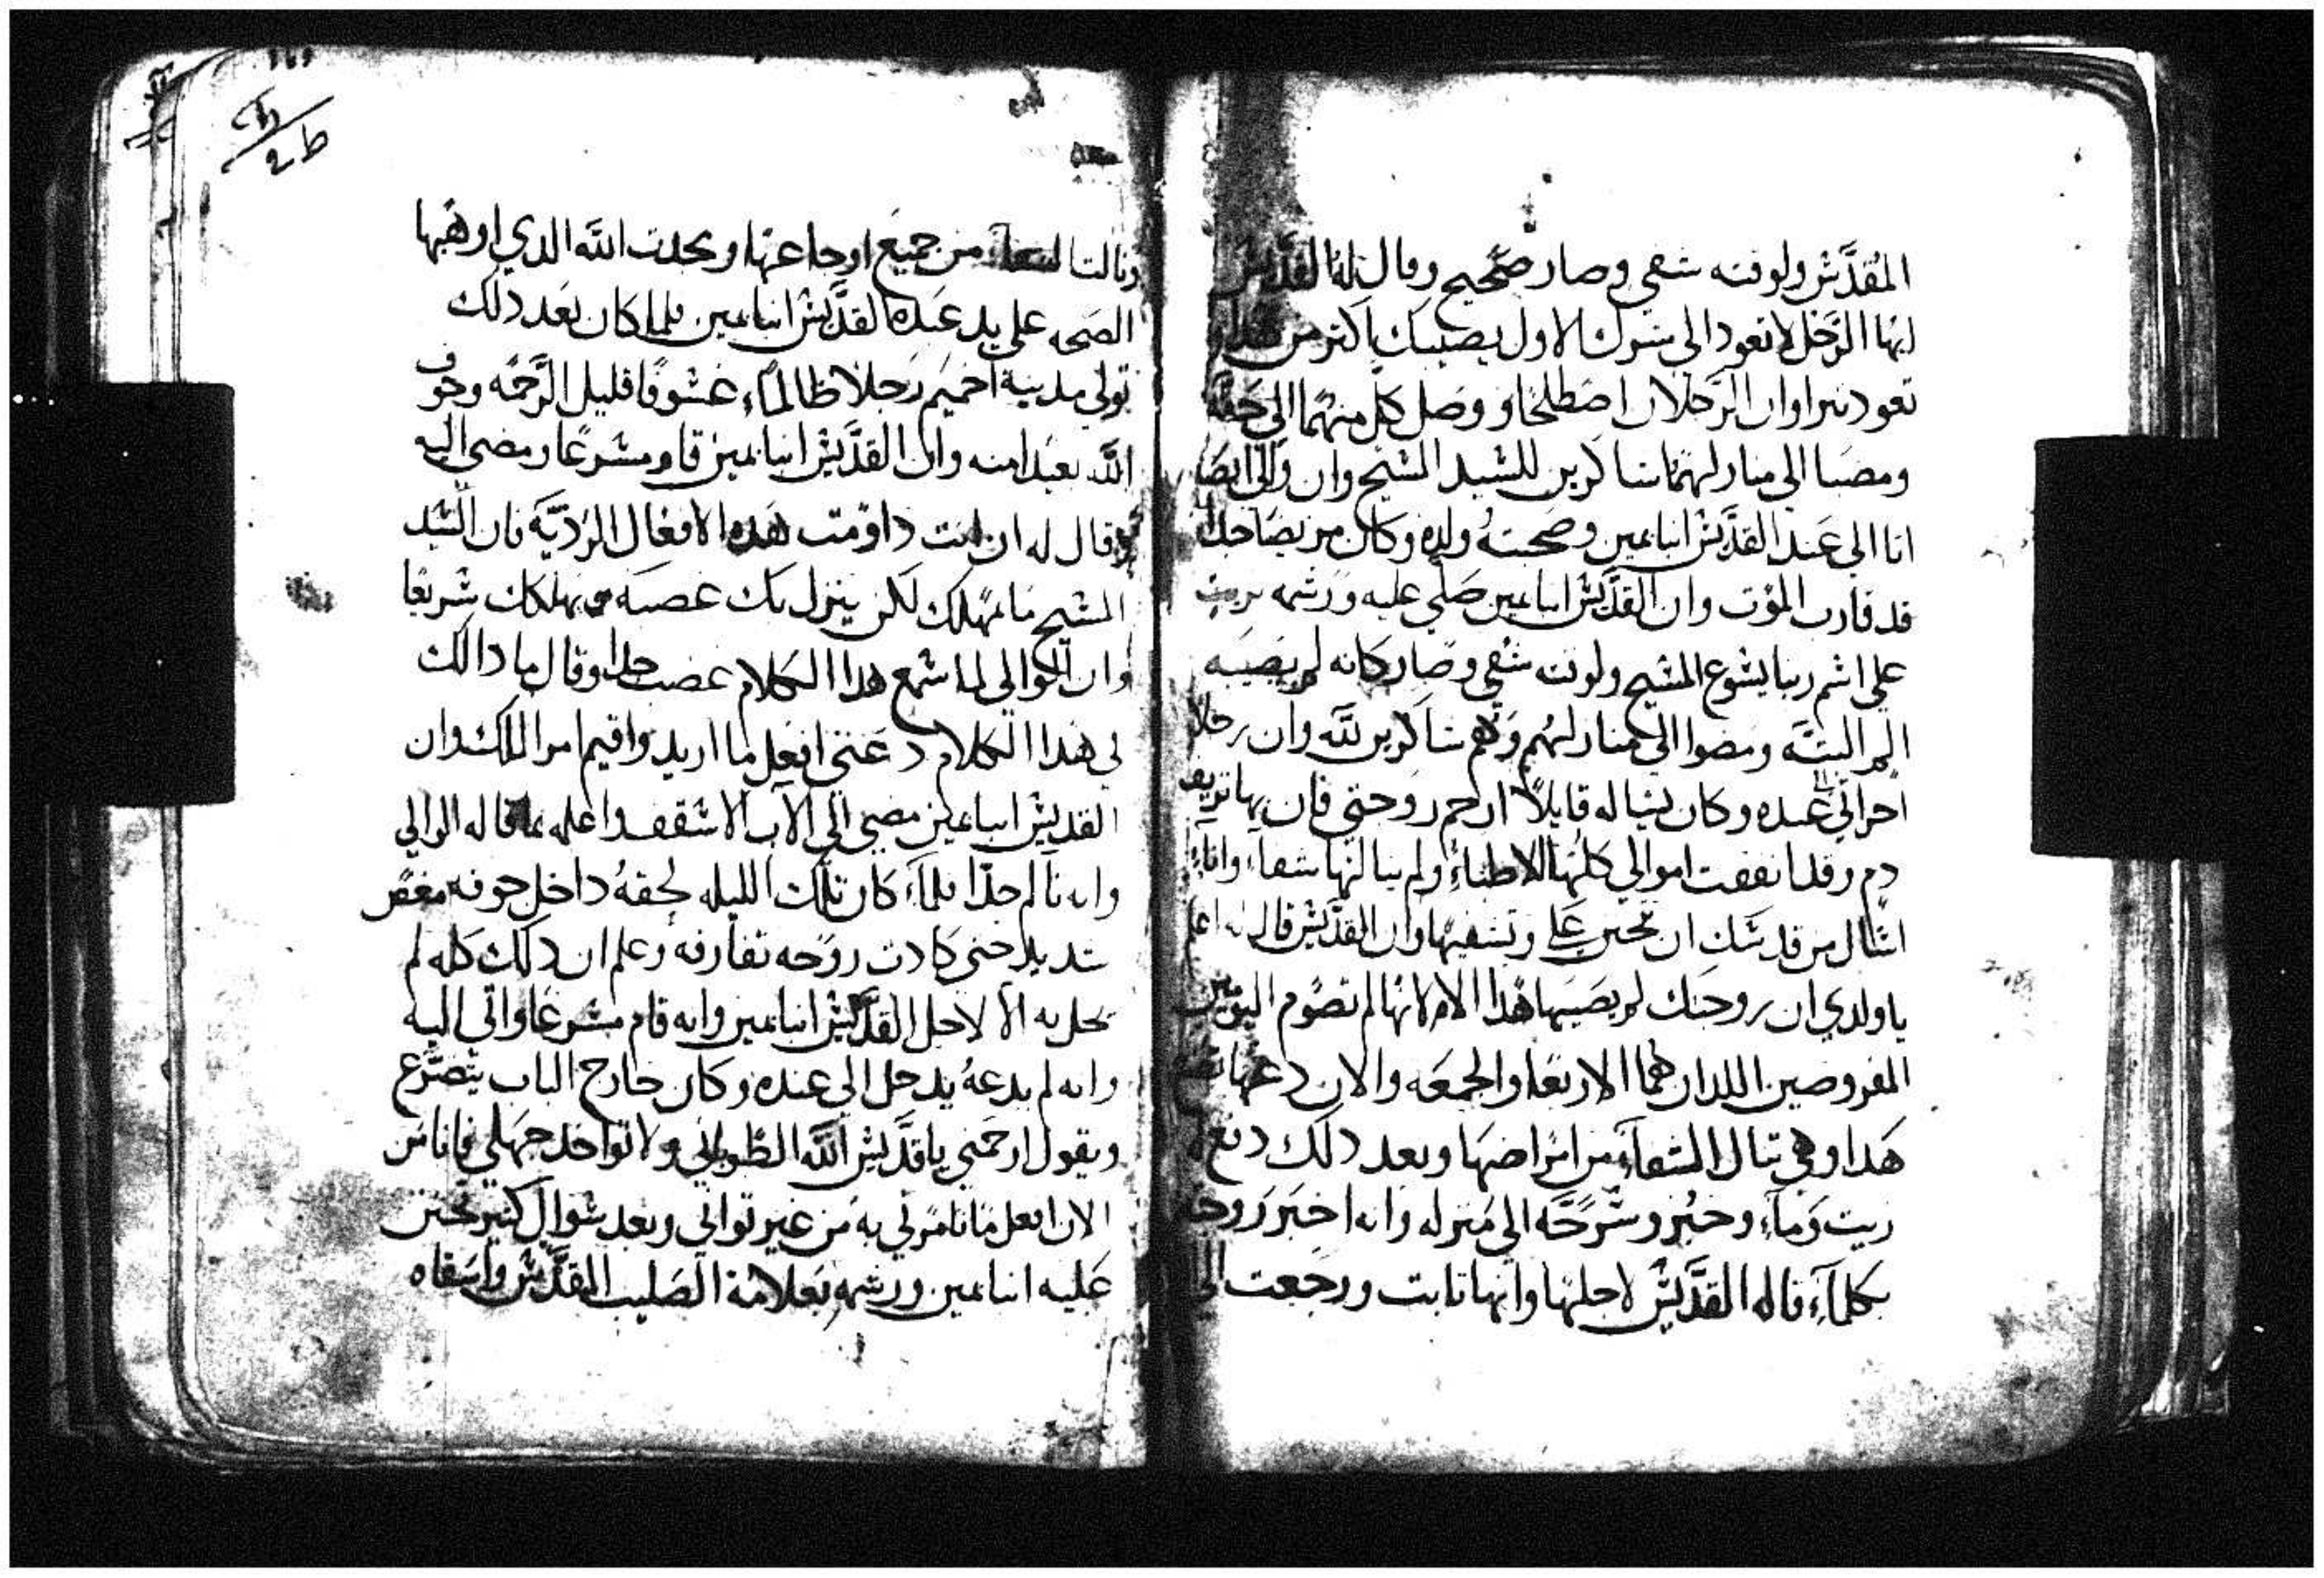 المُقدَّسْ ولوقته شفي وصار صحيح وقال له القدَّيسْ
ايها الرَّجل لا تعود الي شرك الاول يصيبك اكتر من هدا ولا
تعود تبرا وان الرَّجلان اصْطلحَا و وصَل كل منهما الي حقه
ومضيا الي منازلهمَا شاكرين للسَّيد المسَيح وان والي ايضَا
اتا الي عَند القدَّيسْ انبا بمين وصحبته ولده وكان مريضا جدا
قد قارب المَوْت وان القدَّيسْ انبا بمين صَلي عليه ورَشمه بزيت
علي اسْم ربنا يسُوع المسَيح ولوقته شفي وصار كانه لم يصَيبه
الم البتَّه ومضوا الي منازلهُم وَهُم شاكرين للَّه وان رجلا
اخر اتي الي عنده وكان يسَاله قايلاً ارحم زوجتي فان بها نزيف
دم وقد انفقت اموالي كلها للاطباءِ ولم ينالها شفاء وانا
اسَال من قدسَك ان تحنن عَلي وتشفيها وان القدَّيسْ قال له اعلم
يا ولدي ان زوجتك لم يصَيبها هَدا الا لانها لم تصُوم اليومين
المفروضين اللدان هُما الاربعَا والجمعَه والان دعها تصوم
هَدا وهي تنال الشفآءِ من امرَاضهَا وبعد دلك دفع له
زيت وَمآءِ وخبُز وسْرَّحَّه الي مَنزله وانه اخبَر زوجته
بكلمآءِ قاله القدَّيسْ لاجلها وانها تابت ورجَعت الي
ونالت الشفاءِ من جميعَ اوجاعهَا ومجدت اللَّه الدي اوهَبها
الصَحه علي يد عَبده القدَّيسْ انبا بمين فلما كان بَعَد دلك
تولي مدينة اخميَم رَجلاً ظالماً، غشَوُمًا قليل الرَّحمَه وخوف
اللَّه بعَيدا منه وان القدَّيسْ انبا بمين قام مسْرعًا ومضي اليه
وقال له ان انت داوَمت هَده الافعَال الرَديَّهَ فان السَّيد
المسَيح ما يمَهلك لكن ينزل بك غضبَه ويهلكك سَريعًا
وان الوالي لما سْمع هدا الكلام غضبَ جدا وقال ما دالك
لي هَدا الكلام دعَني افعل ما اريد واقيم امر الملك وان
القديسْ انبا بمين مضي الي الآب الاسْقف واعلمه بما قاله الوالي
وانه تالم جدًا فلمآءِ كان تلك الليله لحقهُ داخل جوفه مغصَ
شديد حتي كادت روَحه تفارقه وعلم ان دلك كله لم
يحل به الا لاجل القدَّيسْ انبا بمين وانه قام مسْرعًا واتي اليه
وانه لم يدعهُ يدخل الي عنده وكان خارج الباب يتضرَّع
ويقول ارحَمني يا قدَّيسْ اللَّه الطُوباني ولا تواخد جهَلي فانا مَن
الان افعل مَا تامرني به مَن غير تواني وبعد سْوال كتير تحنن
عَليه انبا بمين ورشمه بعَلامة الصَليب المقدَّسْ واسَقاه